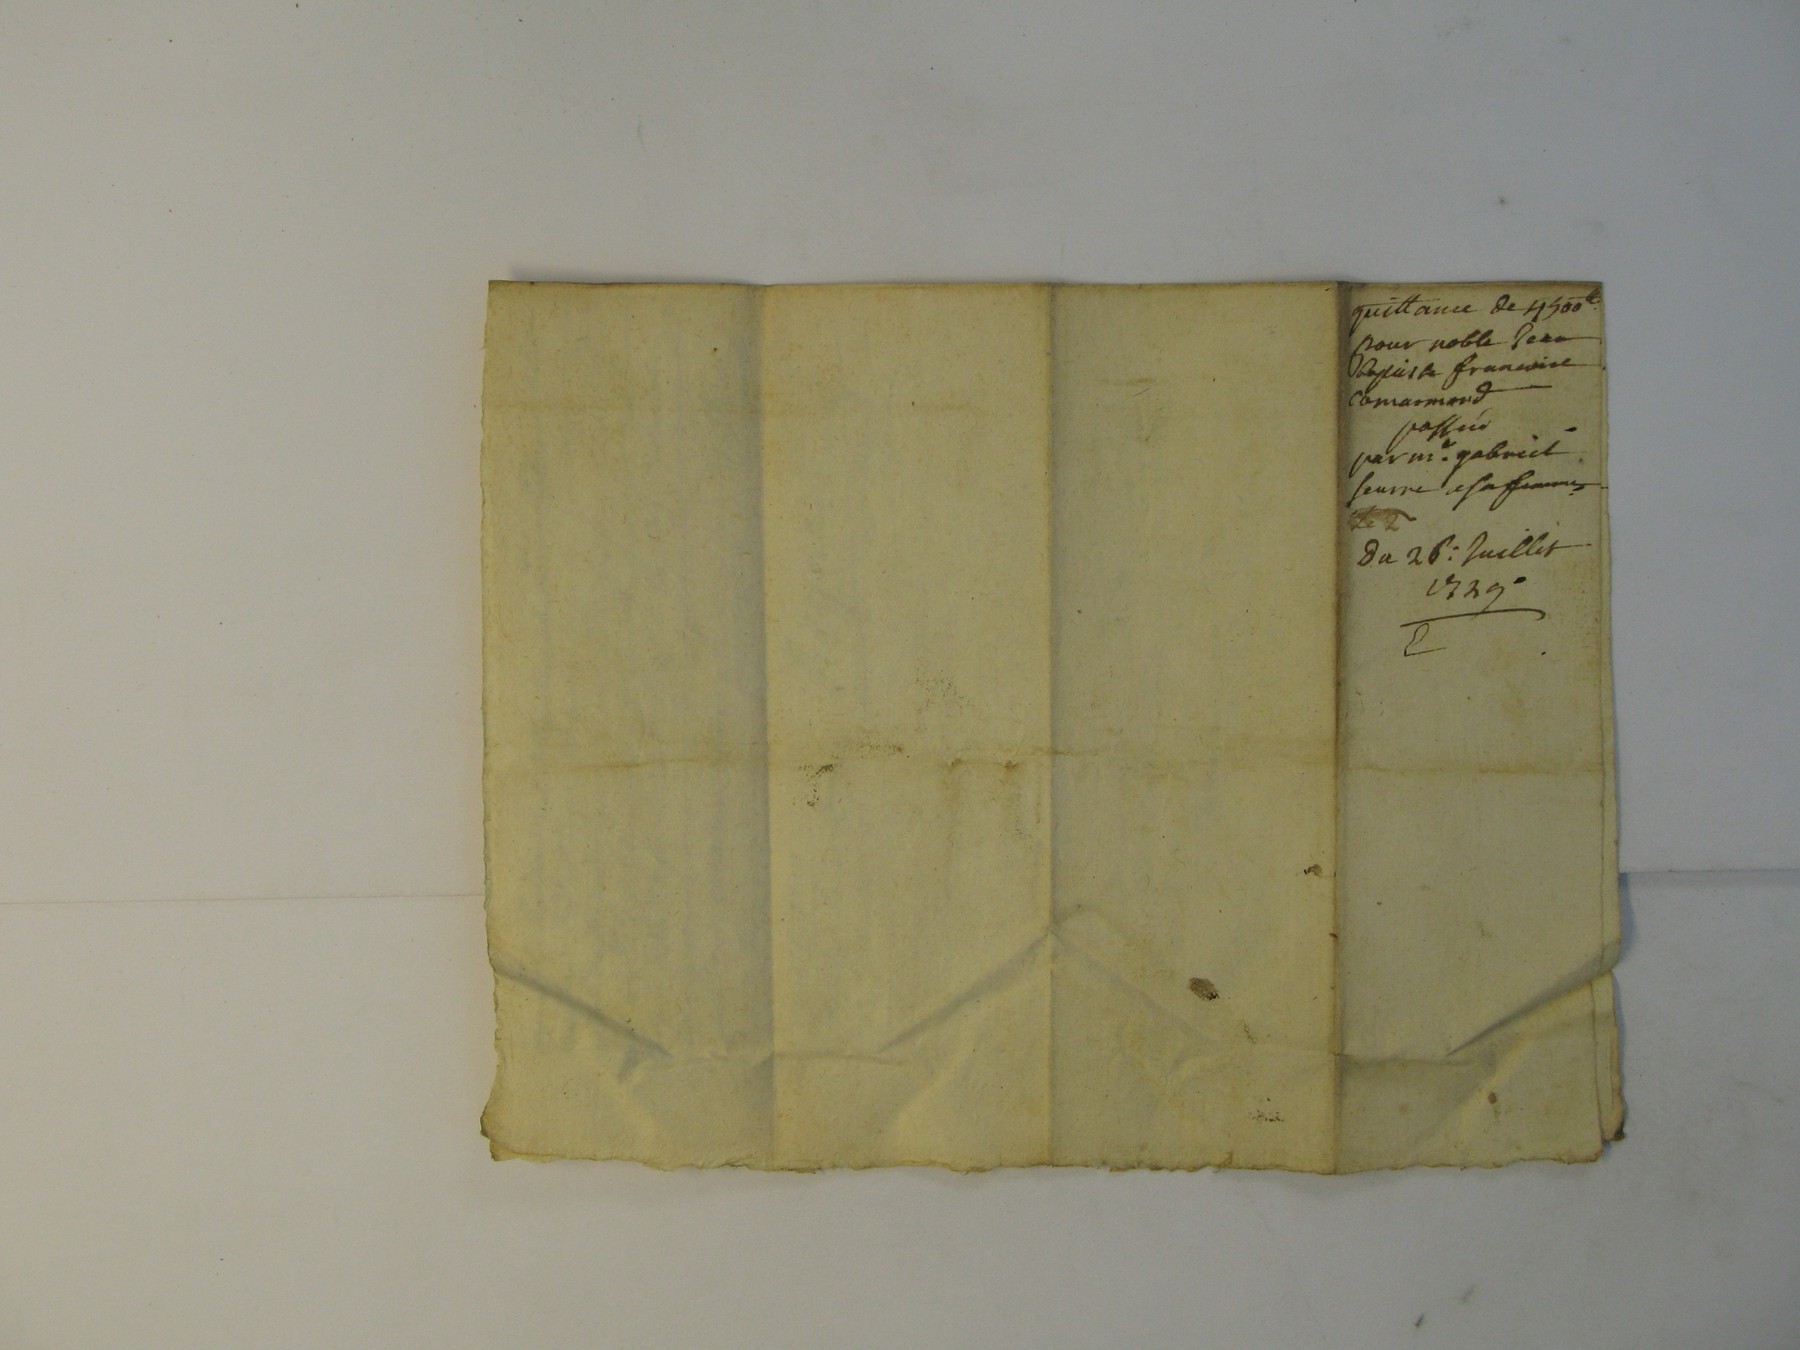 quittance de 4500ᵗᵗ
pour noble Jean
Baptiste francoise
Comarmond
passée
par mʳ. gabriel
seurre & sa femme
Le 2
Du 26ᵉ: Juillet
1729